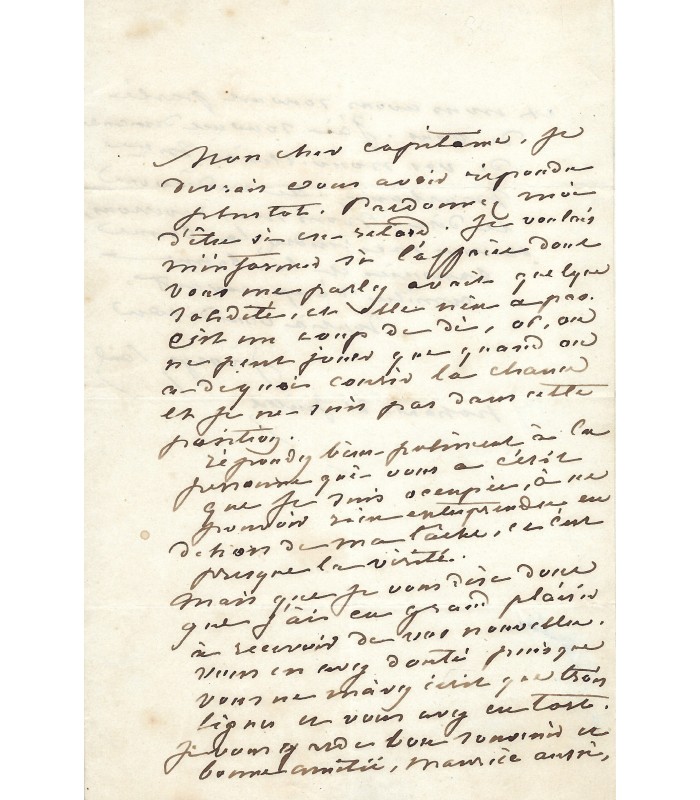 Mon cher capitaine, je
devrais vous avoir répondu
plustot. Pardonnez moi
d'être si en retard. Je voulais
m'informer si l'affaire dont
vous me parlez avait quelque
solidité, et elle n'en a pas.
C'est un coup de dé, où, on
ne peut jouer que quand on
a de quoi courir la chance
et je ne suis pas dans cette
position.
répondez bien poliment à la
personne qui vous a écrit
que je suis occupée, à ne
pouvoir rien entreprendre en
dehors de ma tâche, ce c'est
presque la vérité.
Mais que je vous dise donc
que j'ais eu grand plaisir
à recevoir de vos nouvelles.
vous en avez douté puisque
vous ne m'avez écrit que trois
lignes et vous avez eu tort.
Je vous garde bon souvenir et
bonne amitié, Maurice aussi,